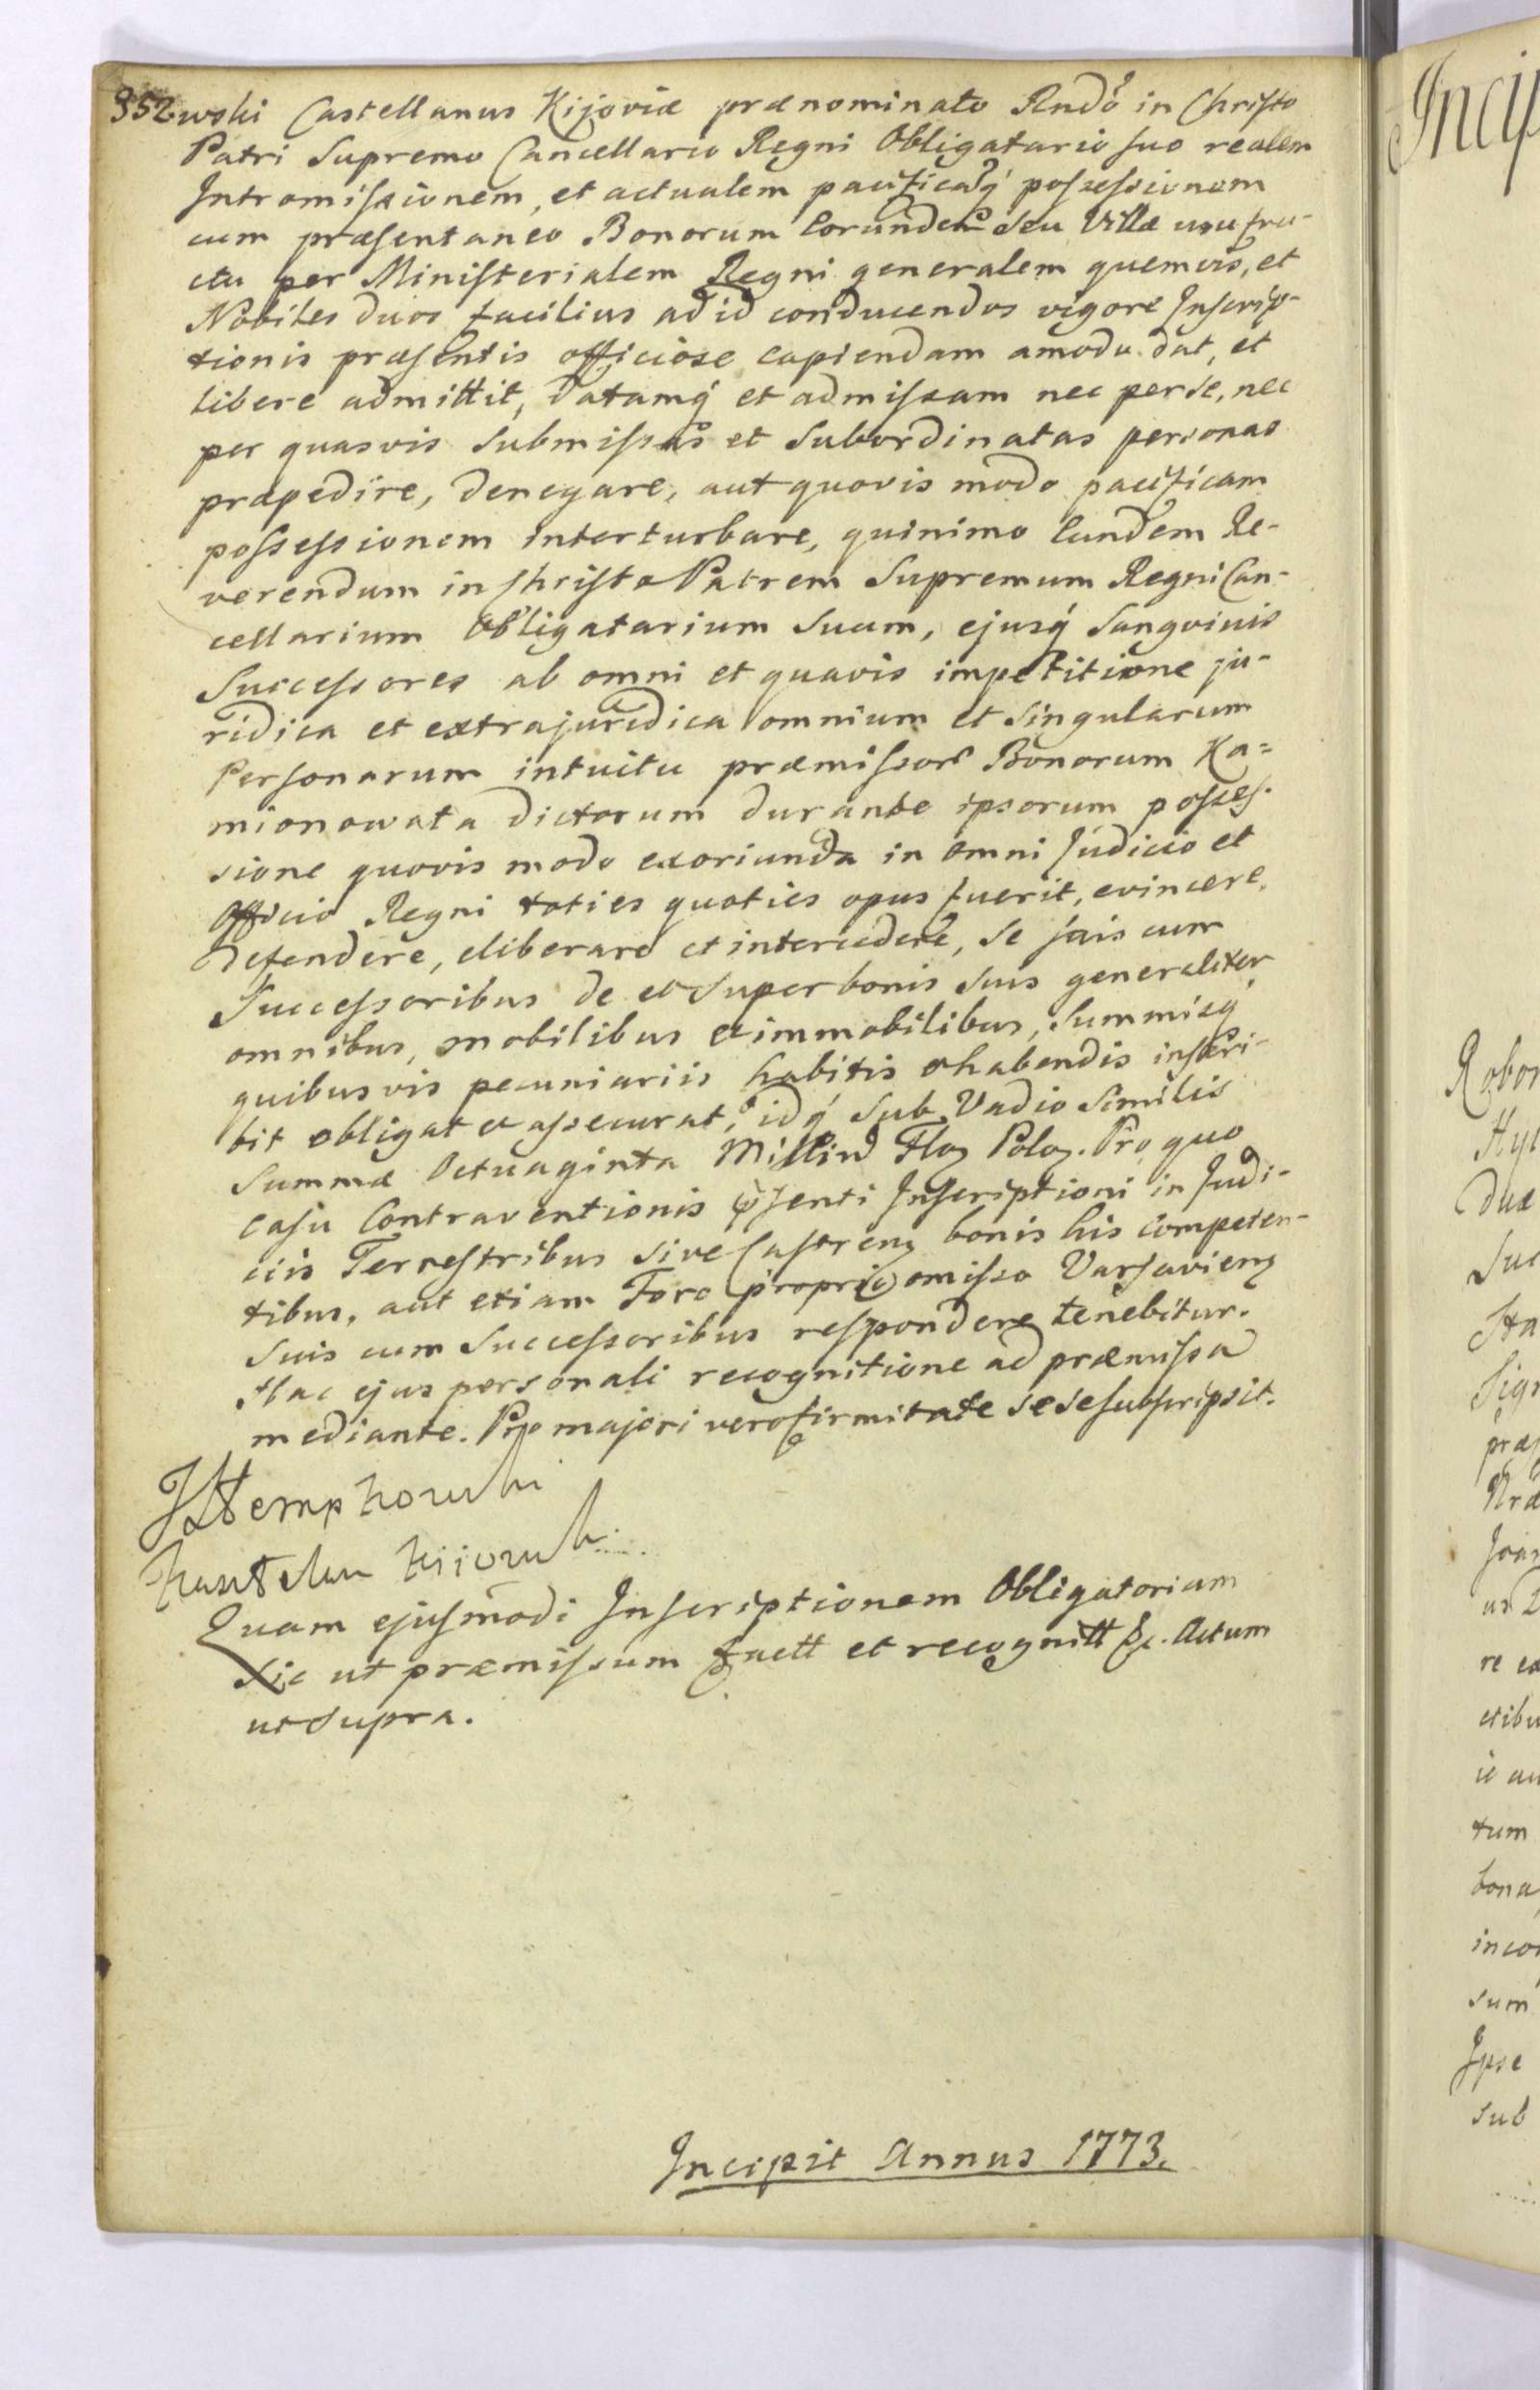 352 wski Castellanus Kijoviæ prænominato Rndo in Christo
Patri Supremo Cancellario Regni Obligatario suo realem
Intromissionem, et actualem pacificaq́ possessionem
cum præsentaneo Bonorum Eorundem Seu Villæ usu fru-
ctu per Ministerialem Regni generalem quemvis, et
Nobiles duos facilius ad id conducendos vigore Inscrip-
tionis præsentis officiose capiendam amodo dat, et
libere admittit, Datamq́ et admissam nec per se, nec
per quasvis Submissas et Subordinatas personas
præpedire, denegare, aut quovis modo pacificam
possessionem interturbare, quinimo Eundem Re-
verendum in Christo Patrem Supremum Regni Can-
cellarium Obligatarium Suum, ejusq́ Sangvinis
Successores ab omni et quavis impetitione ju-
ridica et extrajuridica omnium et Singularum
Personarum intuitu præmissor Bonorum Ka=
mionowata dictorum durante ipsorum posses-
sione quovis modo exoriunda in omni Judicio et
Officio Regni toties quoties opus fuerit, evincere,
Defendere, eliberare et intercedere, Se suis cum
Successoribus de et Super bonis suis generaliter
omnibus, mobilibus et immobilibus, Summisq́
quibusvis pecuniariis habitis et habendis inscri-
bit obligat et assecurat, idq́ Sub Vadio Similis
Summæ Octuaginta Millium Floz Poloz. Pro quo
Casu Contraventionis pñsenti Inscriptioni in Judi-
ciis Terrestribus sive Castrenz bonis his competen-
tibus, aut etiam Foro proprio omisso Varsavienz
Suis cum Successoribus respondere tenebitur.
Hac ejus personali recognitione ad præmissa
mediante. Pro majori vero firmitate se se subscripsit.
JStempkowski
Kasztelan Kiiowski
Quam ejusmodi Inscriptionem Obligatoriam
Sic ut præmissum facit et recognitt &c. Actum
ut Supra.
Incipit Annus 1773.
Incip
Robor
Hyl
Duæ
Suc
Sta
Sign
præs
Joan
re ex
ctibu
tum
bona
incon
sum
Ipse
sub